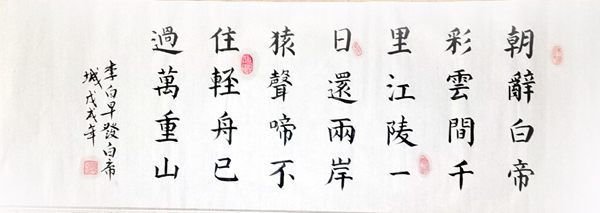 朝辭白帝
彩雲間千
里江陵一
日還兩岸
猿聲啼不
住輕舟已
過萬重山
李白早發白帝
城戊戌年